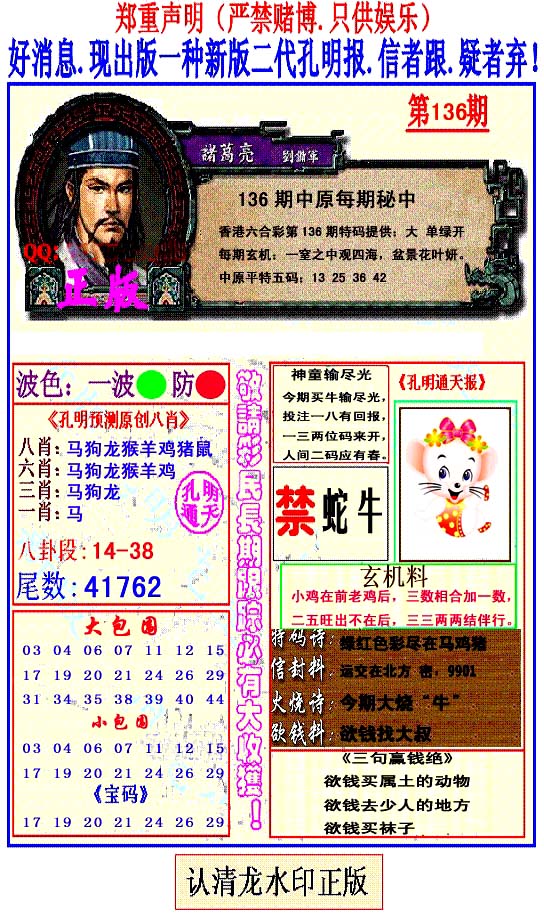 郑重声明（严禁赌博.只供娱乐）
好消息.现出版一种新版二代孔明报.信者跟.疑者弃!
第136期
諸葛亮
136 期中原每期秘中
香港六合彩第 136 期特码提供：大 单绿开
每期玄机：一室之中观四海，盆景花叶妍。
中原平特五码：13 25 36 42
QQ:
正版
波色：一波 防
《孔明预测原创八肖》
八肖：马狗龙猴羊鸡猪鼠
六肖：马狗龙猴羊鸡
三肖：马狗龙
一肖：马
孔明
通天
八卦段：14-38
尾数：41762
大包围
03 04 06 07 11 12 15
17 19 20 21 24 26 29
31 34 35 38 39 40 44
小包围
03 04 06 07 11 12 15
17 19 20 21 24 26 29
《宝码》
17 19 20 21 24 26 29
敬請彩民長期跟踪必有大收獲！
神童输尽光
今期买牛输尽光，
投注一八有回报，
一三两位码来开，
人间二码应有春。
《孔明通天报》
禁 蛇牛
玄机料
小鸡在前老鸡后，三数相合加一数，
二五旺出不在后，三三两两结伴行。
特码诗：绿红色彩尽在马鸡猪
信封料：运交在北方 密，9901
火烧诗：今期大烧“牛”
欲钱料：欲钱找大叔
《三句赢钱绝》
欲钱买属土的动物
欲钱去少人的地方
欲钱买袜子
认清龙水印正版